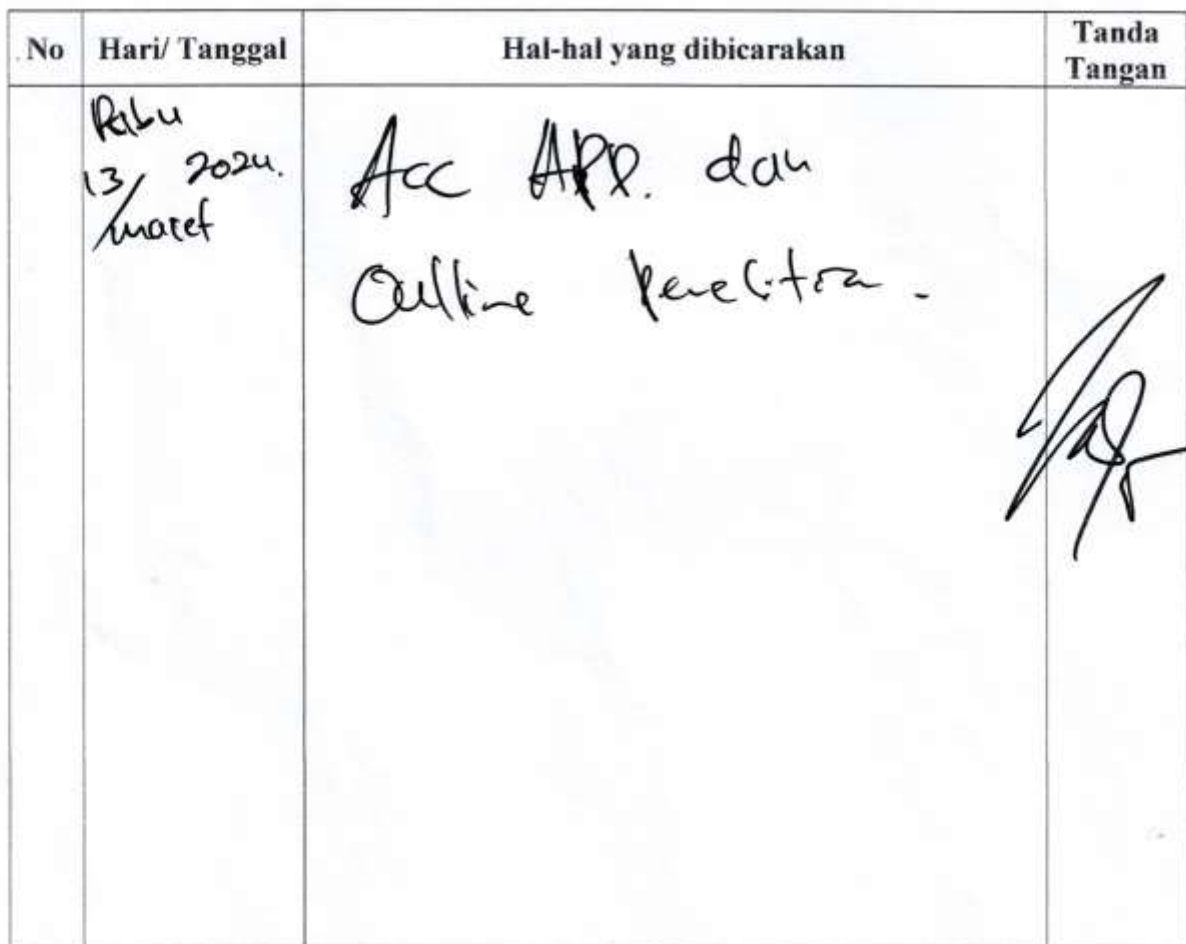 No Hari/ Tanggal Hal-hal yang dibicarakan Tanda Tangan
Rabu
13/ 2024.
maret
Acc APP. dan
Outline Penelitian.